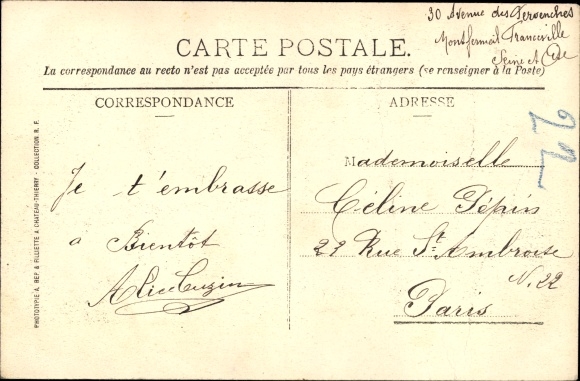 30 Avenue des Pervenches
Montfermeil Franceville
Seine et Oise
CARTE POSTALE.
La correspondance au recto n'est pas acceptée par tous les pays étrangers (se renseigner à la Poste)
CORRESPONDANCE
Je t'embrasse
a Bientôt
Alice
ADRESSE
Mademoiselle
Céline Pépin
22 Rue St. Ambroise
N. 22
Paris
22
PHOTOTYPIE A. REP & FILLIETTE A CHATEAU-THIERRY - COLLECTION R. F.